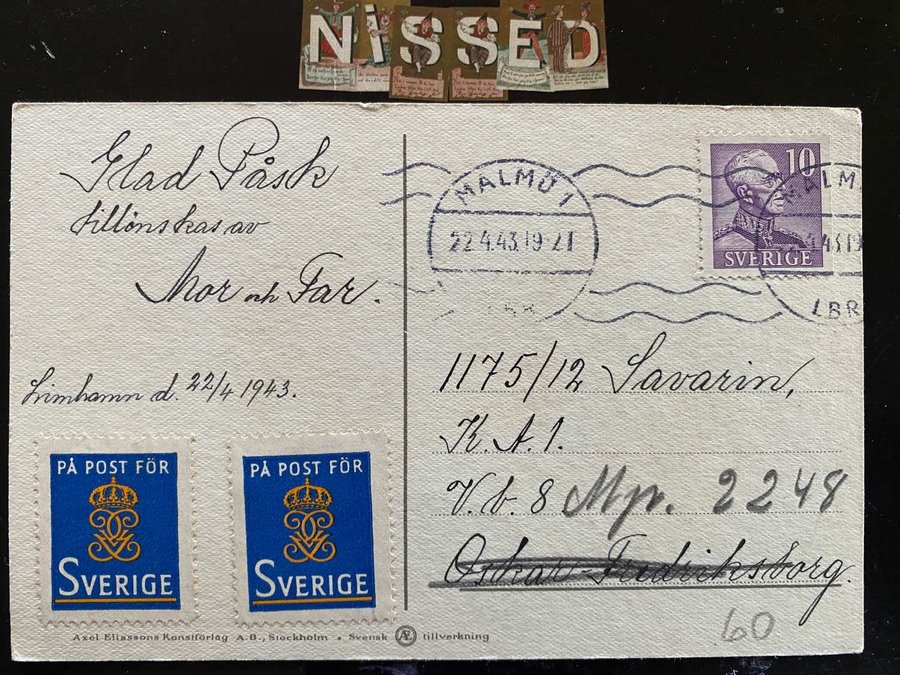 NISSED
Glad Påsk
tillönskas av
Mor och Far.
Limhamn d. 22/4 1943.
PÅ POST FÖR
SVERIGE
PÅ POST FÖR
SVERIGE
Axel Eliassons Konstförlag A.B., Stockholm • Svensk AE tillverkning
MALMÖ 1
22.4.43.19-21
LBR
10
SVERIGE
MALM
4.43 19
LBR
1175/12 Savarin,
K. A. 1.
V. b. 8 Mpr. 2248
Oskar-Fredriksborg.
60